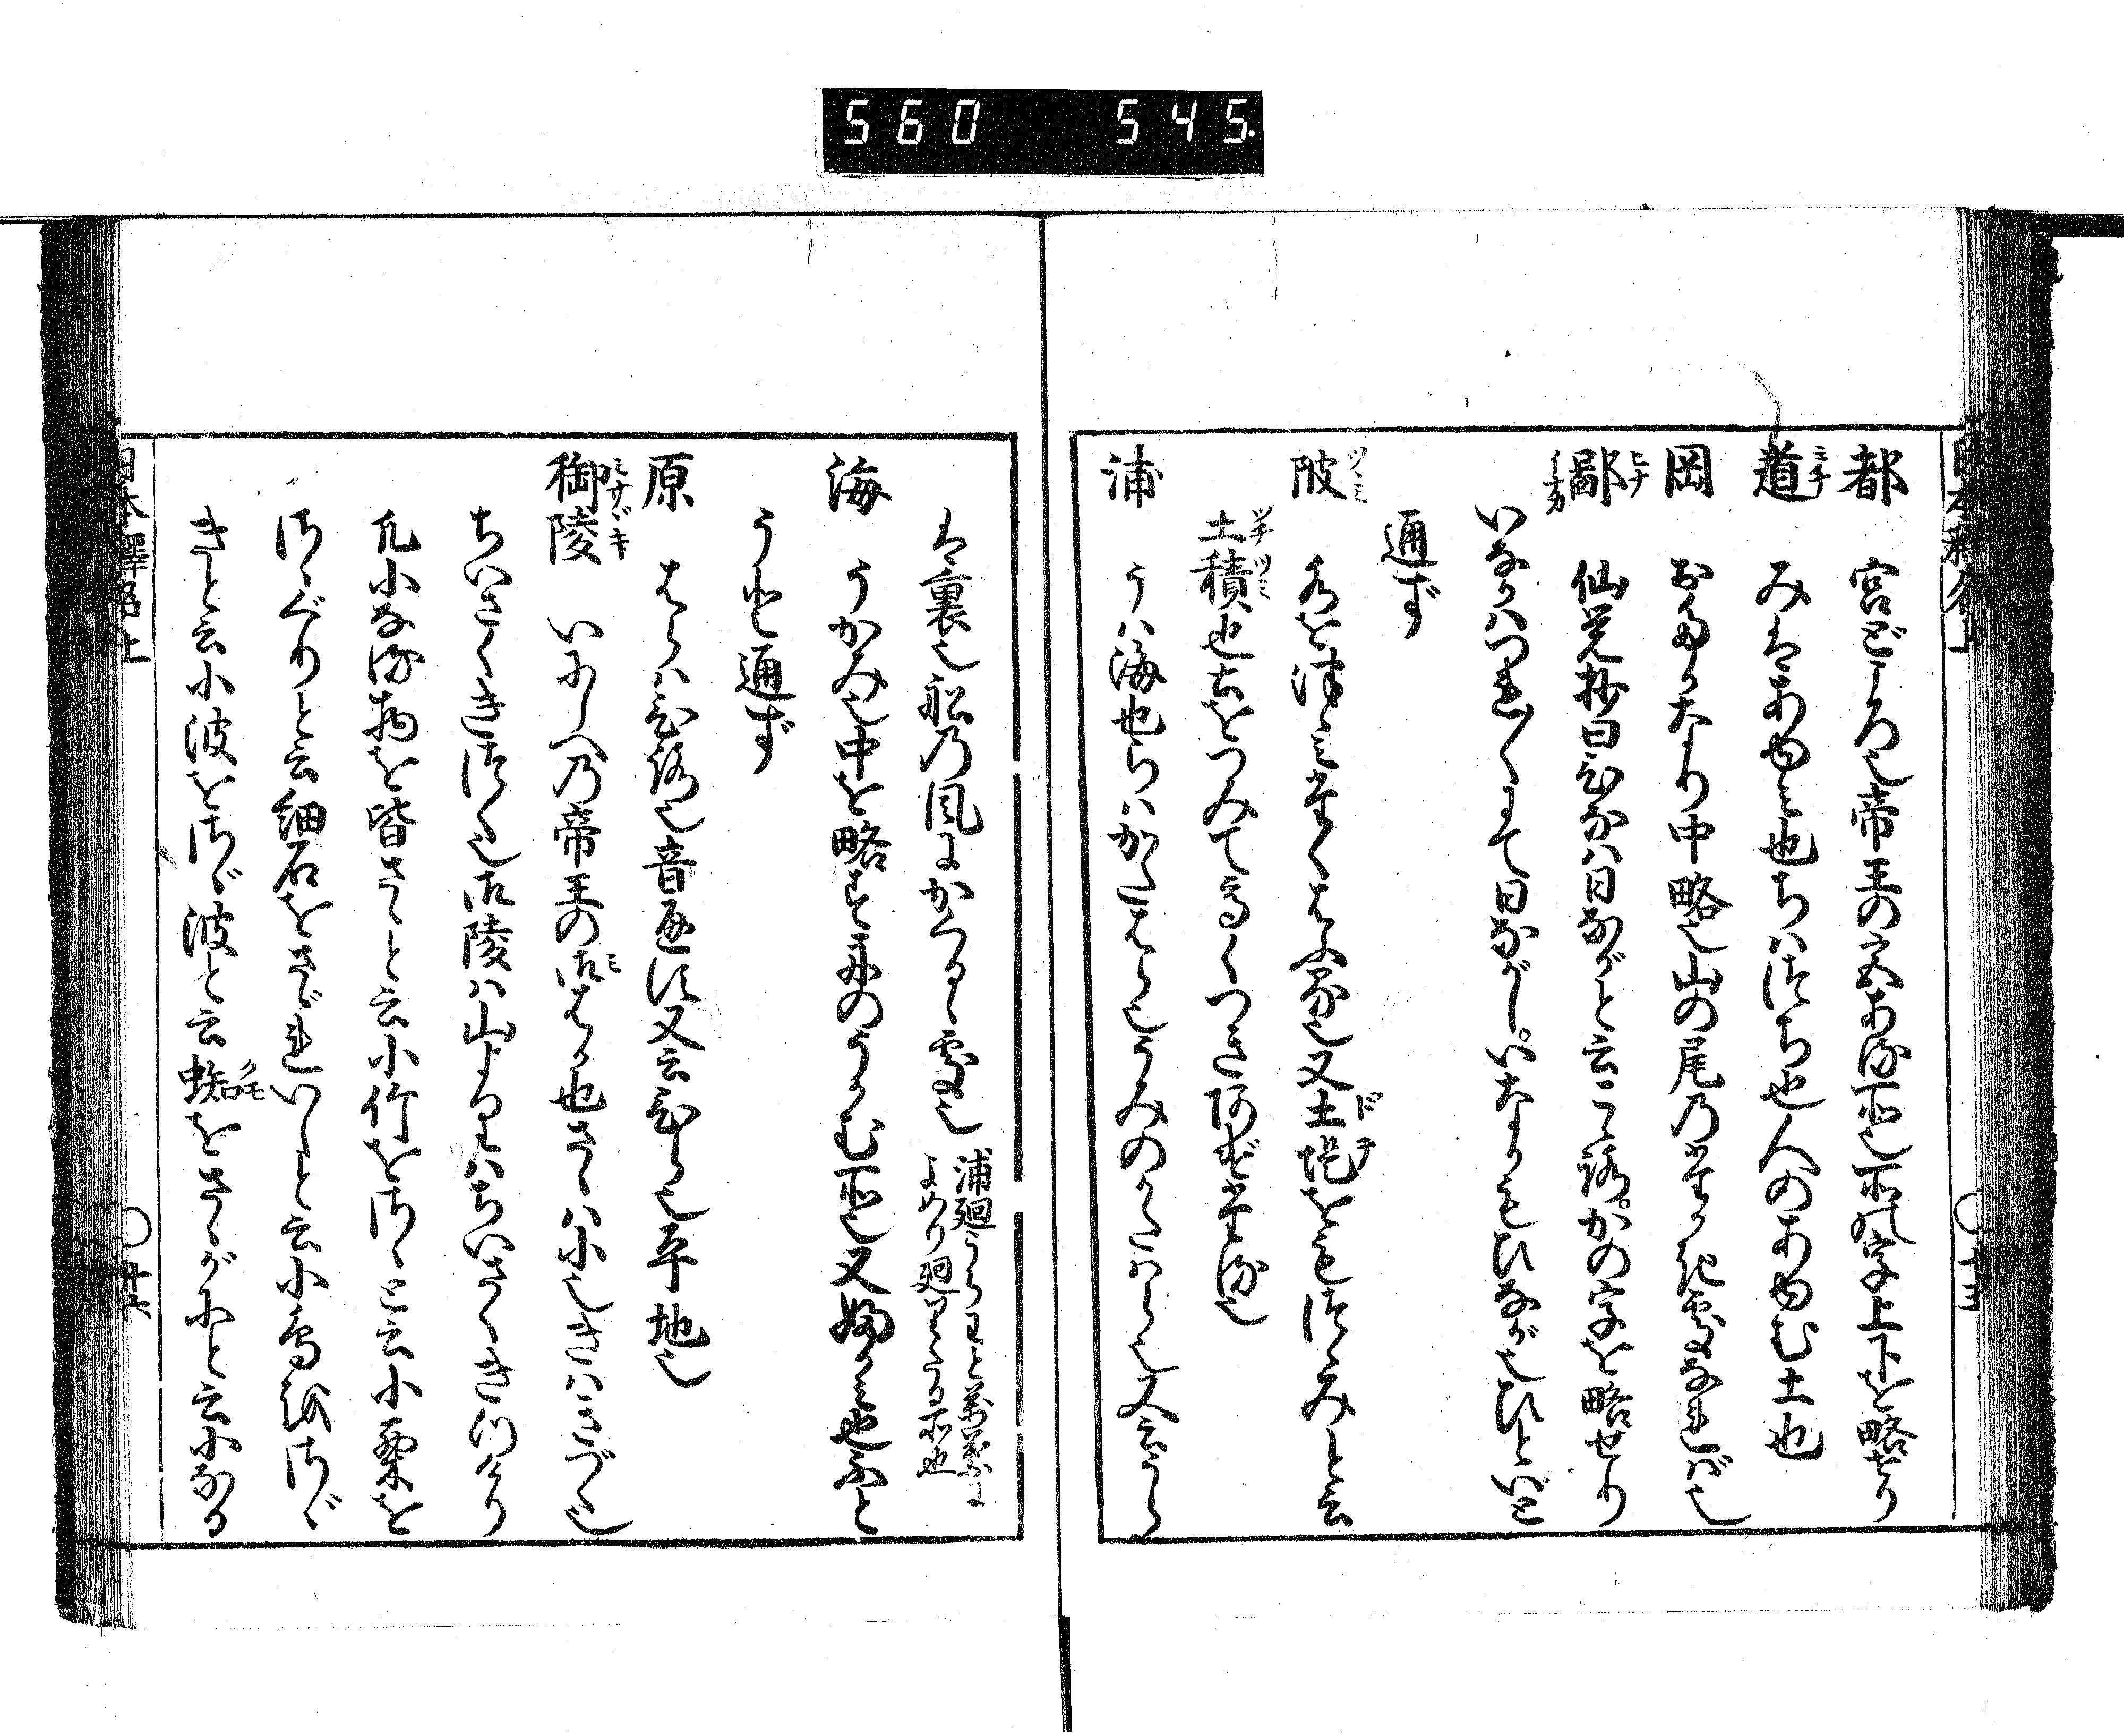 560 545.
都 宮どころ也帝王の宮ある所也所の字上下を略せり
道 ミチ みはあゆみ也ちはつち也人のあゆむ土也
岡 おたかなり中略也山の尾のたかき處なれば也
鄙 ヒナ イナカ 仙覚抄曰ひなは日ながと云こゝろかの字を略せり
いなかはつれ〴〵にて日ながし。いなかもひなが也ひといと
通ず
陂 ツヽミ 水を津ゝミたくはふる也又土堤ドテをもつゝみと云
土積ツチツミ也土をつみて高くつき阿げたる也
浦 うハ海也らハかたはら也うみのかたハら也又云うら
は裏也船乃風にかくるゝ處也 浦廻うらわと萬葉に
よめり廻りたる所也
海 うかみ也中を略す舟のうかむ所也又婦かミ也ふと
うと通ず
原 はらハひろ也音通ス又云ひら也平地也
御陵 ミサヾキ いにしへ乃帝王の御ミはか也さゝハ小也きハきづく也
ちいさくきつく也御陵ハ山よりハちいさくきつけり
凡小なる物を皆さゝと云小竹をさゝと云小栗を
さゝぐりと云細石をさゞれいしと云小鳥をさゞ
きと云小波をさゞ波と云蜘クモをさゝがにと云小なる
日本釋名上
〇廿六